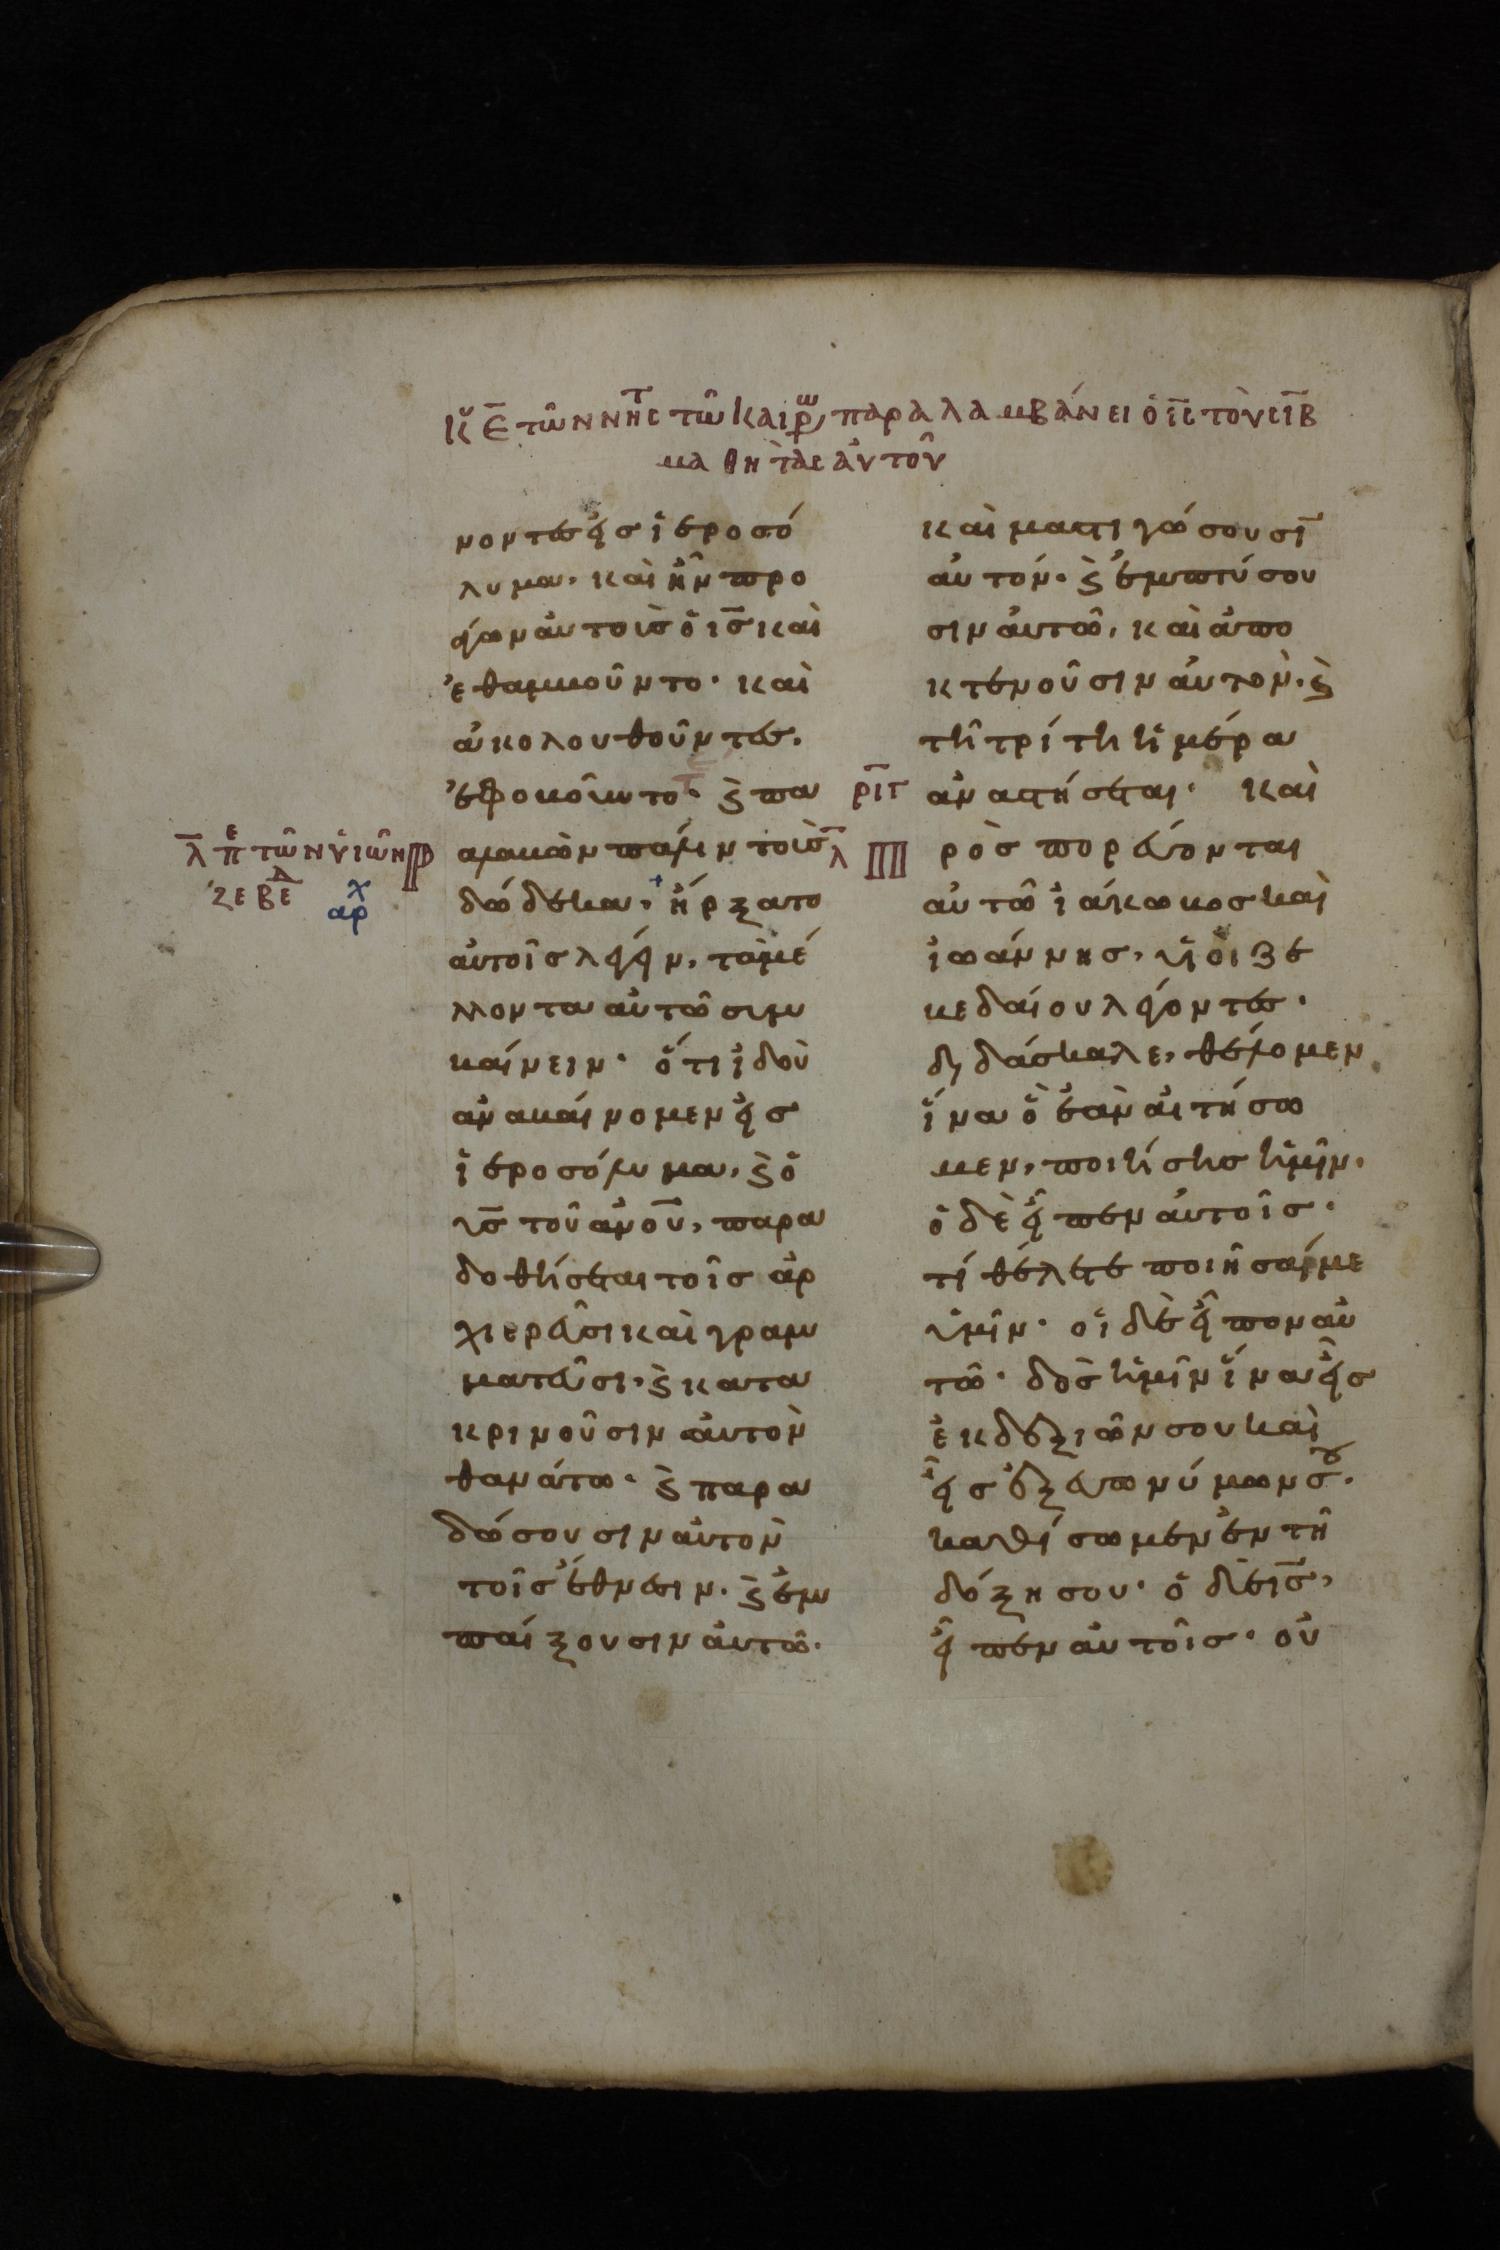 Κυ Ε τῶν νηστ τῶ καιρω παραλαμβάνει ὁ ις τοὺς ιβ
μαθητὰς αὐτοῦ
νοντες εἰς ἱεροσό
λυμα· καὶ ἦν προ
άγων αὐτοὺς ὁ ις καὶ
ἐθαμβοῦντο· καὶ
ἀκολουθοῦντες,
ἐφοβοῦντο· ϗ πα
λ πε τῶν υἱῶν
ζεβεδ
αρχ
ραλαβὼν πάλιν τοὺς
δώδεκα, ἤρξατο
αὐτοῖς λέγειν, τὰ μέ
λλοντα αὐτῶ συμ
βαίνειν· ὅτι ἰδοὺ
ἀναβαίνομεν εἰς
ἱεροσόλυμα, ϗ ὁ
υς τοῦ ανου, παρα
δοθήσεται τοῖς ἀρ
χιερεῦσι καὶ γραμ
ματεῦσι, ϗ κατα
κρινοῦσιν αὐτὸν
θανάτω· ϗ παρα
δώσουσιν αὐτὸν
τοῖς ἔθνεσιν· ϗ ἐμ
παίξουσιν αὐτῶ·
καὶ μαστιγώσουσι
αὐτόν· ϗ ἐμπτύσου
σιν αὐτῶ, καὶ ἀπο
κτενοῦσιν αὐτὸν· ϗ
τῆ τρίτη ἡμέρα
ριγ ἀναστήσεται· Καὶ
λ ρὸσπορεύονται
αὐτῶ ἰάκωβος καὶ
ἰωάννης, υἱοὶ ζε
βεδαίου λέγοντες·
διδάσκαλε, θέλομεν
ἵνα ὃ ἐὰν αἰτήσω
μεν, ποιήσης ἡμῖν·
ὁ δὲ εἶπεν αὐτοῖς·
τί θέλετε ποιῆσαί με
ὑμῖν· οἱ δὲ εἶπον αὐ
τῶ· δὸς ἡμῖν ἵνα εἷς
ἐκ δεξιῶν σου καὶ
εἷς ἐξ εὐωνύμων σου·
καθίσωμεν ἐν τῆ
δόξη σου· ὁ δὲ ις,
εἶπεν αὐτοῖς· οὐ